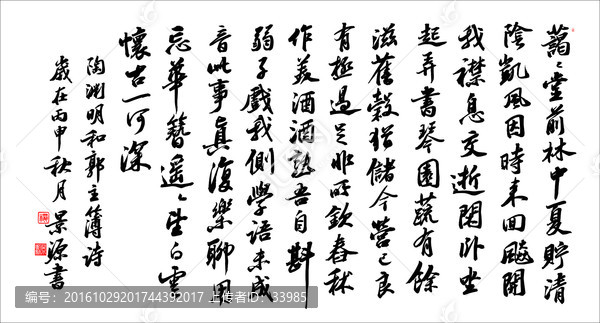 藹〻堂前林中夏貯清
陰凱風因時来回飈開
我襟息交逝閑卧坐
起弄書琴園蔬有餘
滋舊穀猶儲今營己良
有極過足非所欽舂秫
作美酒酒熟吾自斟
弱子戲我側學語未成
音此事真復樂聊用
忘華簪遥〻望白雲
懷古一何深
陶渊明和郭主簿詩
歲在丙申秋月景源書
编号：20161029201744392017 上传者ID：33985